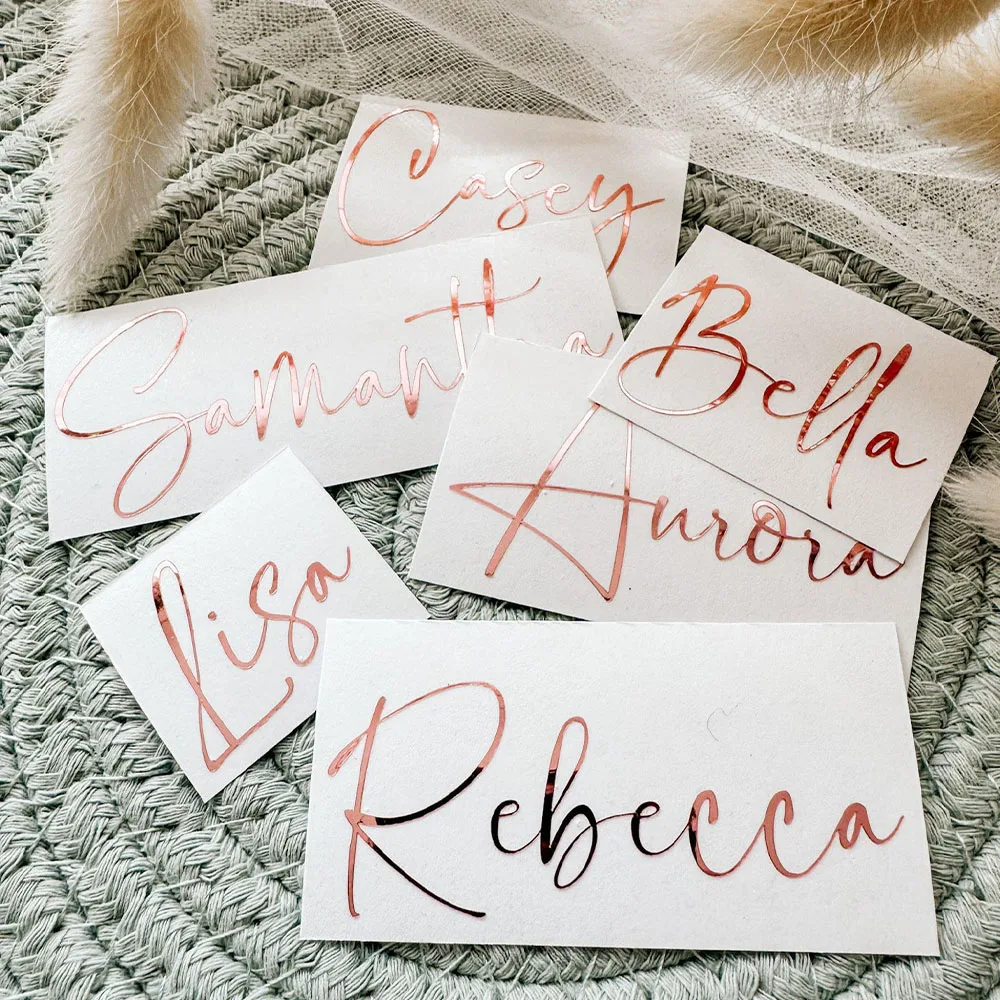 Casey
Samantha
Bella
Aurora
Lisa
Rebecca